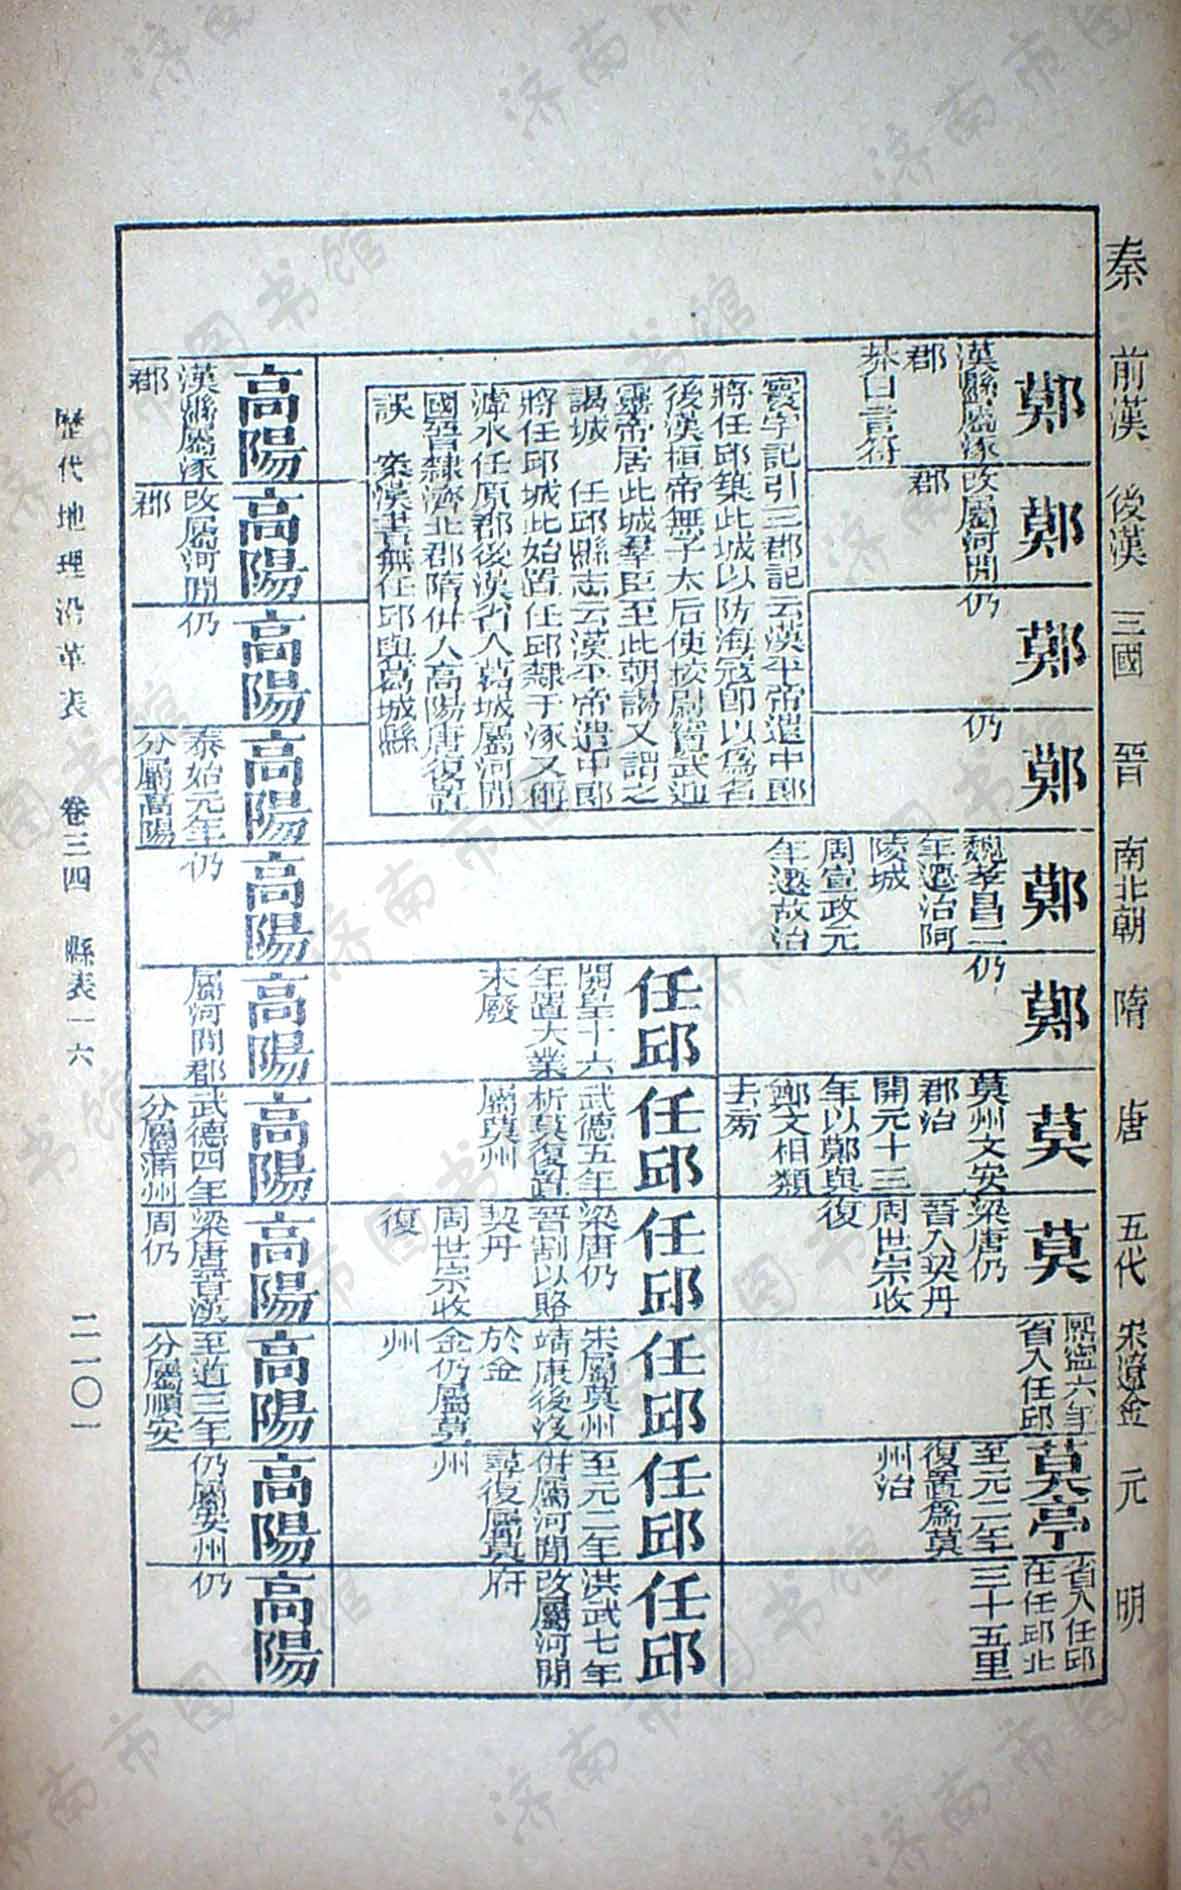 秦
前漢
後漢
三國
晉
南北朝
隋
唐
五代
宋遼金
元
明
鄚
漢縣屬涿
郡
莽曰言符
鄚
改屬河間
郡
鄚
仍
鄚
仍
鄚
魏孝昌二
年遷治阿
陵城
周宣政元
年遷故治
鄚
仍
莫
莫州文安
郡治
開元十三
年以鄚與
鄭文相類
去旁
莫
梁唐仍
晉入契丹
周世宗收
復
熙寧六年
省入任邱
莫亭
至元二年
復置為莫
州治
省入任邱
在任邱北
三十五里
寰宇記引三郡記云漢平帝遣中郎
將任邱築此城以防海寇即以為名
後漢桓帝無子太后使校尉竇武迎
靈帝居此城羣臣至此朝謁又謂之
謁城 任邱縣志云漢平帝遣中郎
將任邱城此始置任邱隸于涿又在
滹水任原郡後漢省入葛城屬河間
國晉隸濟北郡隋併入高陽唐復置
誤 案漢書無任邱與葛城縣
任邱
開皇十六
年置大業
末廢
任邱
武德五年
析莫復置
屬莫州
任邱
梁唐仍
晉割以賂
契丹
周世宗收
復
任邱
宋屬莫州
靖康後沒
於金
金仍屬莫
州
任邱
至元二年
併屬河間
尋復屬莫
州
任邱
洪武七年
改屬河間
府
高陽
漢縣屬涿
郡
高陽
改屬河間
郡
高陽
仍
高陽
泰始元年
分屬高陽
高陽
仍
高陽
屬河間郡
高陽
武德四年
分屬蒲州
高陽
梁唐晉漢
周仍
高陽
至道三年
分屬順安
高陽
仍屬安州
高陽
仍
歷代地理沿革表 卷三四 縣表一六 二一〇一
济南市图书馆